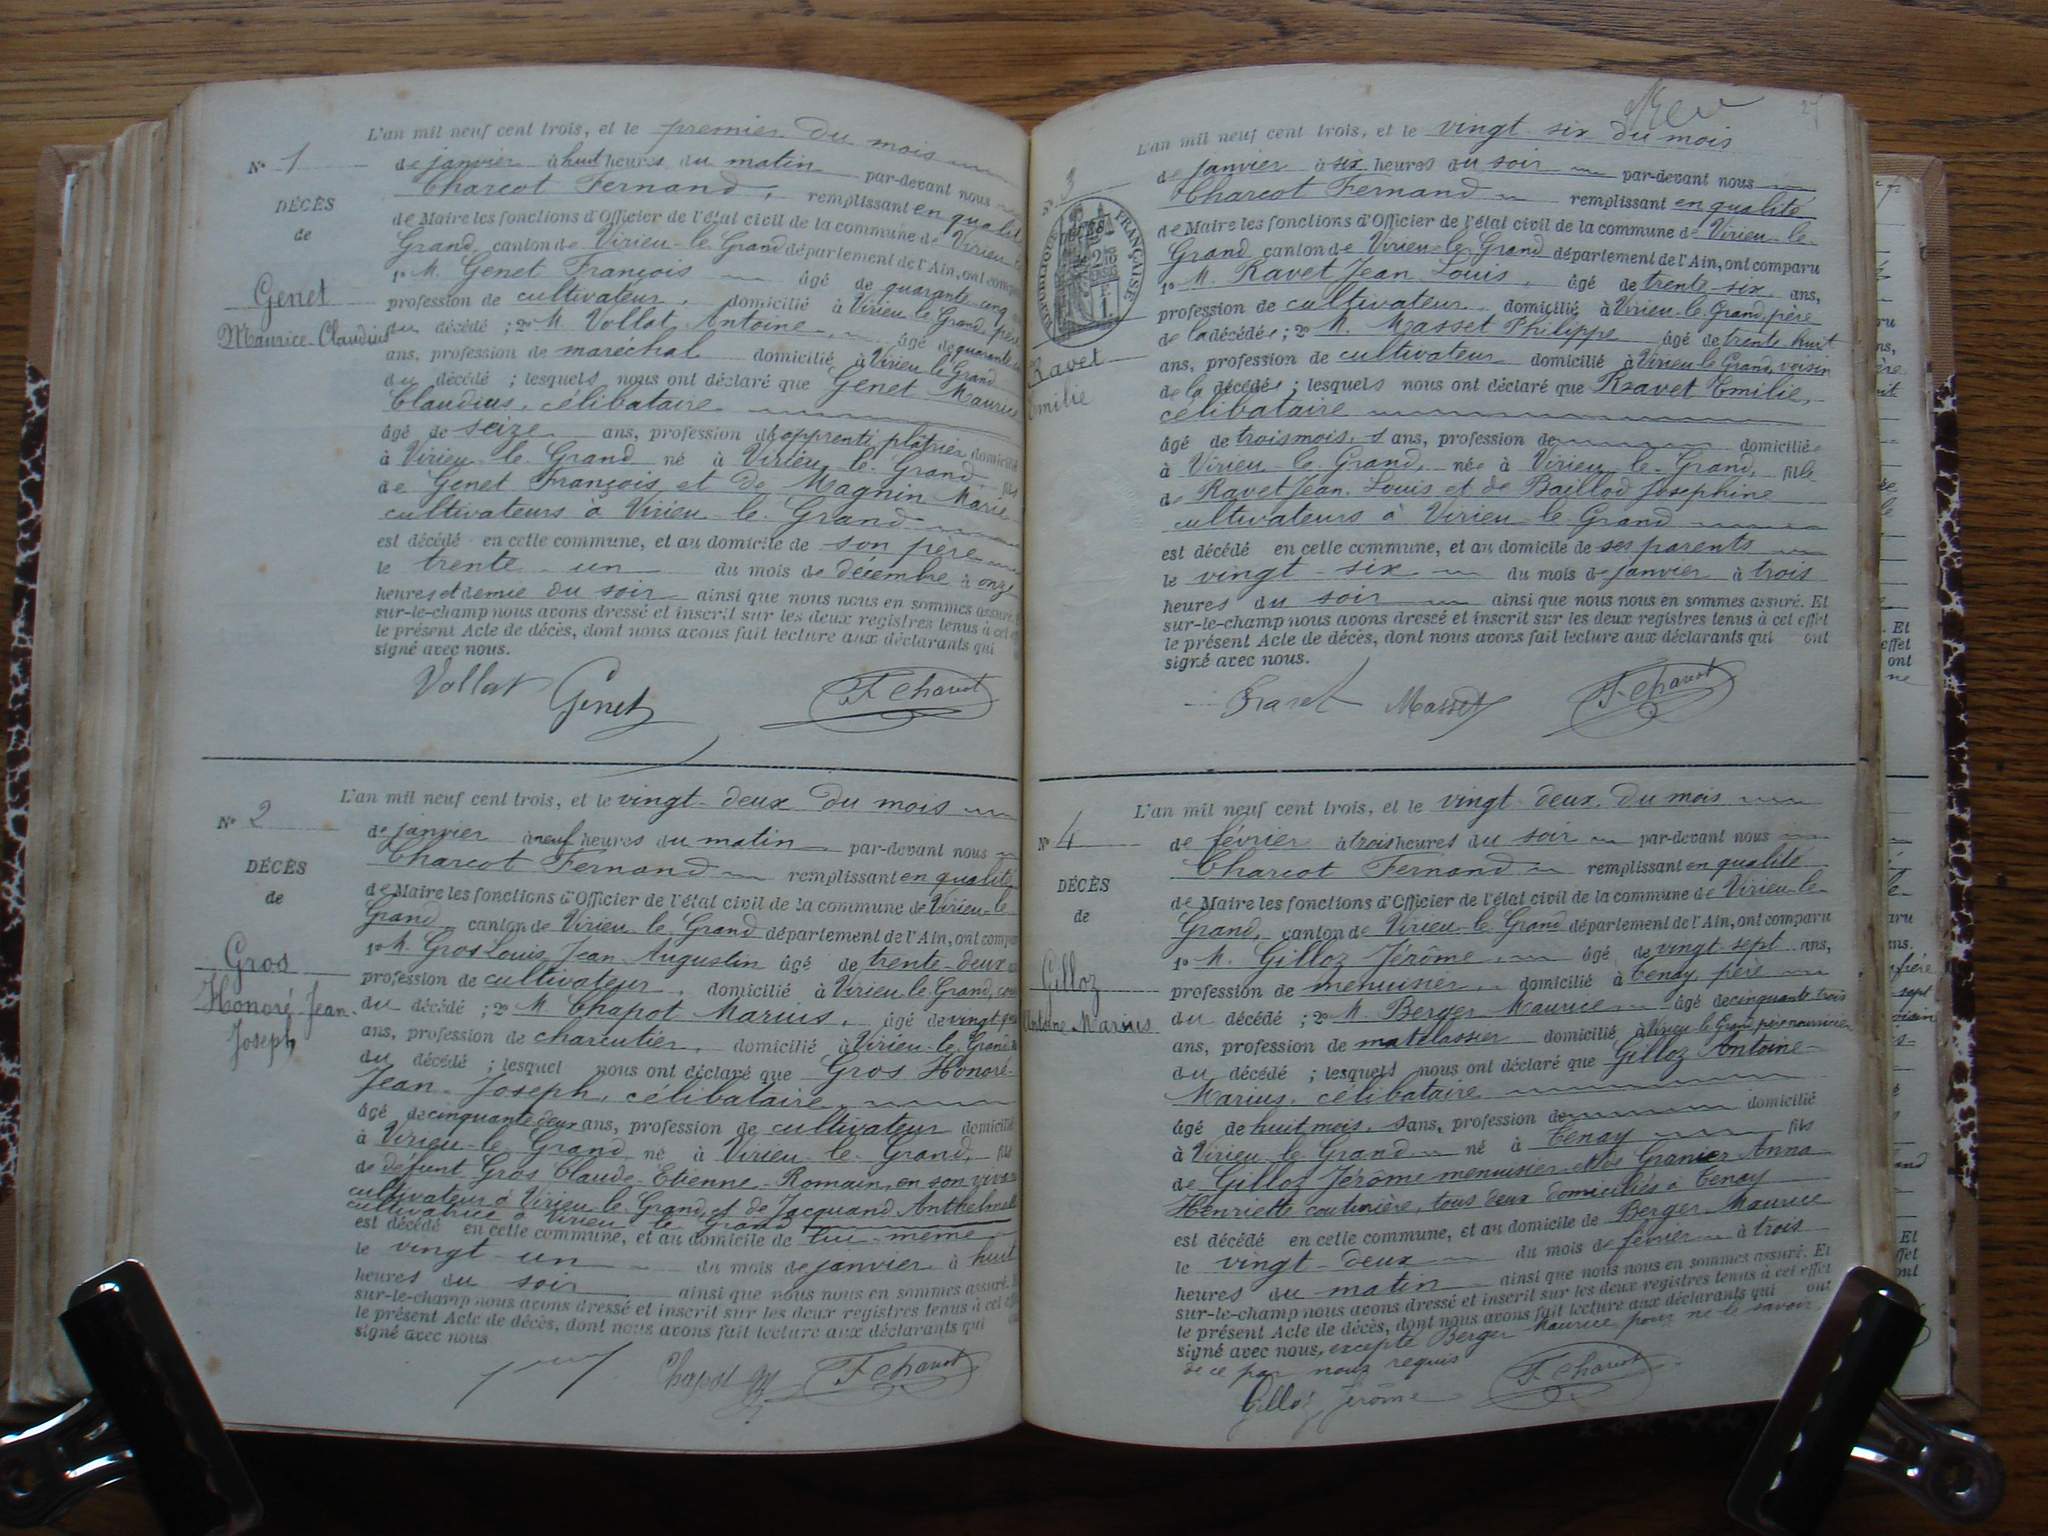 L'an mil neuf cent trois, et le premier du mois
N° 1
de janvier à huit heures du matin par-devant nous
Charcot Fernand, remplissant en qualité
DÉCÈS
de Maire les fonctions d'Officier de l'état civil de la commune de Virieu-le
de
Grand, canton de Virieu-le Grand département de l'Ain, ont comparu
1° M. Genet François âgé de quarante-cinq
Genet
profession de cultivateur, domicilié à Virieu-le Grand, père
Maurice-Claudius
du décédé ; 2° M. Vollat Antoine, âgé de quarante
ans, profession de maréchal domicilié à Virieu le Grand
du décédé ; lesquels nous ont déclaré que Genet Maurice
Claudius, célibataire
âgé de seize ans, profession d'apprenti plâtrier domicilié
à Virieu-le-Grand né à Virieu-le-Grand, fils
de Genet François et de Magnin Marie
cultivateurs à Virieu-le-Grand
est décédé en cette commune, et au domicile de son père
le trente-un du mois de décembre à onze
heures et demie du soir ainsi que nous nous en sommes assuré. Et
sur-le-champ nous avons dressé et inscrit sur les deux registres tenus à cet effet
le présent Acte de décès, dont nous avons fait lecture aux déclarants qui
signé avec nous.
Vollat Genet F. Charcot
L'an mil neuf cent trois, et le vingt-deux du mois
N° 2
de janvier à neuf heures du matin par-devant nous
Charcot Fernand remplissant en qualité
DÉCÈS
de Maire les fonctions d'Officier de l'état civil de la commune de Virieu-le
de
Grand canton de Virieu-le Grand département de l'Ain, ont comparu
Gros
1° M. Gros Louis Jean Augustin âgé de trente-deux
profession de cultivateur, domicilié à Virieu-le Grand,
Honoré-Jean-
Joseph
du décédé ; 2° M. Chapot Marius, âgé de vingt
ans, profession de charcutier, domicilié à Virieu-le-Grand
du décédé ; lesquel nous ont déclaré que Gros Honoré-
Jean-Joseph, célibataire
âgé de cinquante deux ans, profession de cultivateur domicilié
à Virieu-le-Grand, né à Virieu-le-Grand, fils
de défunt Gros Claude-Etienne-Romain, en son vivant
cultivateur à Virieu le Grand, et de Jacquand Anthelmette
cultivatrice à Virieu le Grand
est décédé en cette commune, et au domicile de lui-même
le vingt-un du mois de janvier à huit
heures du soir ainsi que nous nous en sommes assuré. Et
sur-le-champ nous avons dressé et inscrit sur les deux registres tenus à cet effet
le présent Acte de décès, dont nous avons fait lecture aux déclarants qui
signé avec nous
Chapot F. Charcot
27
L'an mil neuf cent trois, et le vingt-six du mois
N° 3
de janvier à six heures du soir par-devant nous
Charcot Fernand remplissant en qualité
RÉPUBLIQUE FRANÇAISE
de Maire les fonctions d'Officier de l'état civil de la commune de Virieu-le-
Grand canton de Virieu-le-Grand département de l'Ain, ont comparu
1° M. Ravet Jean Louis, âgé de trente-six ans,
profession de cultivateur domicilié à Virieu-le-Grand, père
Ravet
Emilie
de la décédée ; 2° M. Masset Philippe âgé de trente-huit
ans, profession de cultivateur domicilié à Virieu le Grand, voisin
de la décédée ; lesquels nous ont déclaré que Ravet Emilie,
célibataire
âgé de trois mois, s ans, profession de domiciliée
à Virieu-le-Grand, née à Virieu-le-Grand, fille
de Ravet Jean-Louis et de Baillod Josephine
cultivateurs à Virieu-le Grand
est décédé en cette commune, et au domicile de ses parents
le vingt-six du mois de janvier à trois
heures du soir ainsi que nous nous en sommes assuré. Et
sur-le-champ nous avons dressé et inscrit sur les deux registres tenus à cet effet
le présent Acte de décès, dont nous avons fait lecture aux déclarants qui ont
signé avec nous.
Ravet Masset F. Charcot
L'an mil neuf cent trois, et le vingt-deux du mois
N° 4
de février à trois heures du soir par-devant nous
Charcot Fernand remplissant en qualité
DÉCÈS
de Maire les fonctions d'Officier de l'état civil de la commune de Virieu-le-
de
Grand, canton de Virieu-le Grand département de l'Ain, ont comparu
Gilloz
1° M. Gilloz Jérôme, âgé de vingt sept ans,
profession de menuisier domicilié à Tenay, père
Antoine-Marius
du décédé ; 2° M. Berger Maurice âgé de cinquante trois
ans, profession de matelassier domicilié à Virieu-le Grand, père nourricier
du décédé ; lesquels nous ont déclaré que Gilloz Antoine-
Marius, célibataire
âgé de huit mois, s ans, profession de domicilié
à Virieu-le Grand né à Tenay fils
de Gilloz Jérôme menuisier et de Granier Anna
Henriette couturière, tous deux domiciliés à Tenay
est décédé en cette commune, et au domicile de Berger Maurice
le vingt-deux du mois de février à trois
heures du matin ainsi que nous nous en sommes assuré. Et
sur-le-champ nous avons dressé et inscrit sur les deux registres tenus à cet effet
le présent Acte de décès, dont nous avons fait lecture aux déclarants qui ont
signé avec nous, excepté Berger Maurice pour ne le savoir
de ce par nous requis
Gilloz Jérôme F. Charcot